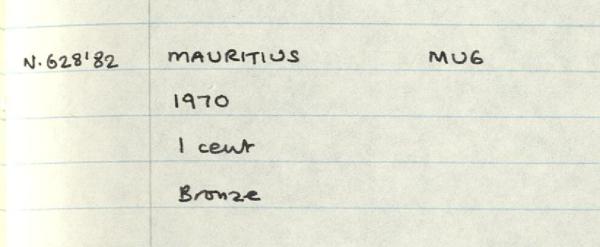 N.628'82 MAURITIUS MUG
1970
1 cent
Bronze